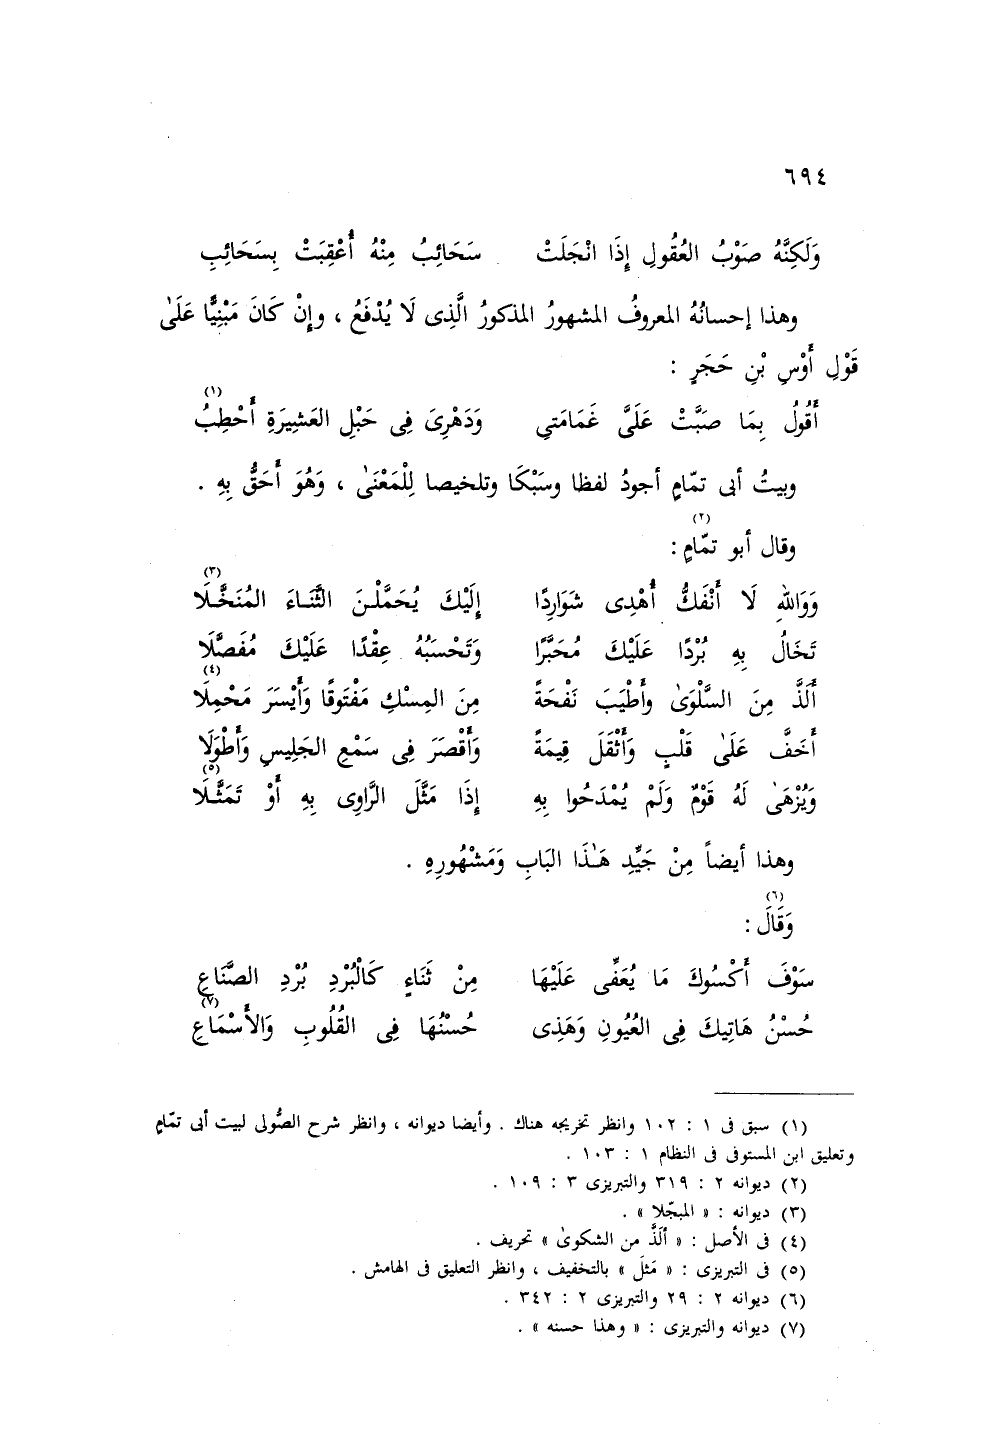 ٦٩٤
وَلَكِنَّهُ صَوْبُ العُقُولِ إِذَا انْجَلَتْ سَحَائِبُ مِنْهُ أُعْقِبَتْ بِسَحَائِبِ
وهذا إحسانُهُ المعروفُ المشهورُ المذكورُ الَّذِى لَا يُدْفَعُ ، وإِنْ كَانَ مَبْنِيًّا عَلَىٰ
قَوْلِ أَوْسِ بْنِ حَجَرٍ :
أَقُولُ بِمَا صَبَّتْ عَلَىَّ غَمَامَتِى وَدَهْرِىَ فِى حَبْلِ العَشِيرَةِ أَحْطِبُ (١)
وبيتُ أبى تمّامٍ أجودُ لفظا وسَبْكَا وتلخيصا لِلْمَعْنَىٰ ، وَهُوَ أَحَقُّ بِهِ .
وقال أبو تمّامٍ (٢) :
وَوَاللهِ لَا أَنْفَكُّ أُهْدِى شَوَارِدًا إِلَيْكَ يُحَمَّلْنَ الثَّنَاءَ المُنَخَّلَا (٣)
تَخَالُ بِهِ بُرْدًا عَلَيْكَ مُحَبَّرًا وَتَحْسَبُهُ عِقْدًا عَلَيْكَ مُفَصَّلَا
أَلَذَّ مِنَ السَّلْوَىٰ وأَطْيَبَ نَفْحَةً مِنَ المِسْكِ مَفْتَوقًا وَأَيْسَرَ مَحْمِلَا (٤)
أَخَفَّ عَلَىٰ قَلْبٍ وَأَثْقَلَ قِيمَةً وَأَقْصَرَ فِى سَمْعِ الجَلِيسِ وَأَطْوَلَا
وَيُزْهَىٰ لَهُ قَوْمٌ وَلَمْ يُمْدَحُوا بِهِ إِذَا مَثَّلَ الرَّاوِى بِهِ أَوْ تَمَثَّلَا (٥)
وهذا أيضاً مِنْ جَيِّدِ هَـٰذَا البَابِ وَمَشْهُورِهِ .
وَقَالَ (٦) :
سَوْفَ أَكْسُوكَ مَا يُعَفِّى عَلَيْهَا مِنْ ثَنَاءٍ كَالْبُرْدِ بُرْدِ الصَّنَاعِ
حُسْنُ هَاتِيكَ فِى العُيُونِ وَهَذِى حُسْنُهَا فِى القُلُوبِ وَالأَسْمَاعِ (٧)
(١) سبق فى ١ : ١٠٢ وانظر تخريجه هناك . وأيضا ديوانه ، وانظر شرح الصُّولى لبيت أبى تمّام
وتعليق ابن المستوفى فى النظام ١ : ١٠٣ .
(٢) ديوانه ٢ : ٣١٩ والتبريزى ٣ : ١٠٩ .
(٣) ديوانه : « المبجّلا » .
(٤) فى الأصل : « ألَذَّ من الشكوىٰ » تحريف .
(٥) فى التبريزى : « مَثلَ » بالتخفيف ، وانظر التعليق فى الهامش .
(٦) ديوانه ٢ : ٢٩ والتبريزى ٢ : ٣٤٢ .
(٧) ديوانه والتبريزى : « وهذا حسنه » .